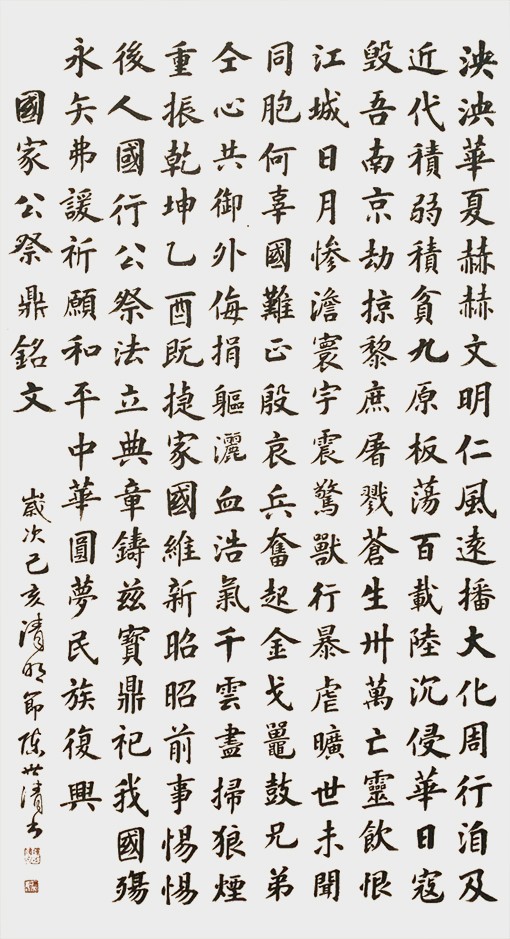 泱泱華夏赫赫文明仁風遠播大化周行洎及
近代積弱積貧九原板蕩百載陸沉侵華日寇
毀吾南京劫掠黎庶屠戮蒼生卅萬亡靈飲恨
江城日月慘澹寰宇震驚獸行暴虐曠世未聞
同胞何辜國難正殷哀兵奮起金戈鼉鼓兄弟
仝心共御外侮捐軀灑血浩氣千雲盡掃狼煙
重振乾坤乙酉既捷家國維新昭昭前事惕惕
後人國行公祭法立典章鑄茲寶鼎祀我國殤
永矢弗諼祈願和平中華圓夢民族復興
國家公祭鼎銘文
歲次己亥清明節陳世清书